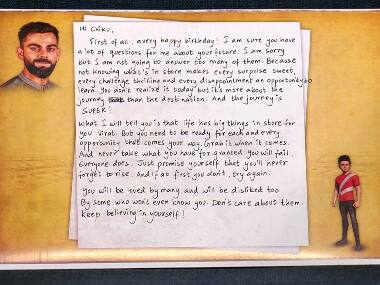 Hi CHIKU,
First of all, a very happy birthday! I am sure you have
a lot of questions for me about your future. I am sorry
but I am not going to answer too many of them. Because
not knowing what's in store makes every surprise sweet,
every challenge thrilling and every disappointment an opportunity to
learn. You don't realize is today but it's more about the
journey than the destination. And the journey is
SUPER!
What I will tell you is that life has big things in store for
you Virat. But you need to be ready for each and every
opportunity that comes your way. Grab it when it comes.
And never take what you have for granted. You will fail.
Everyone does. Just promise yourself that you'll never
forget to rise. And if at first you don't, try again.
You will be loved by many and will be disliked too
By some who won't even know you. Don't care about them.
Keep believing in yourself!